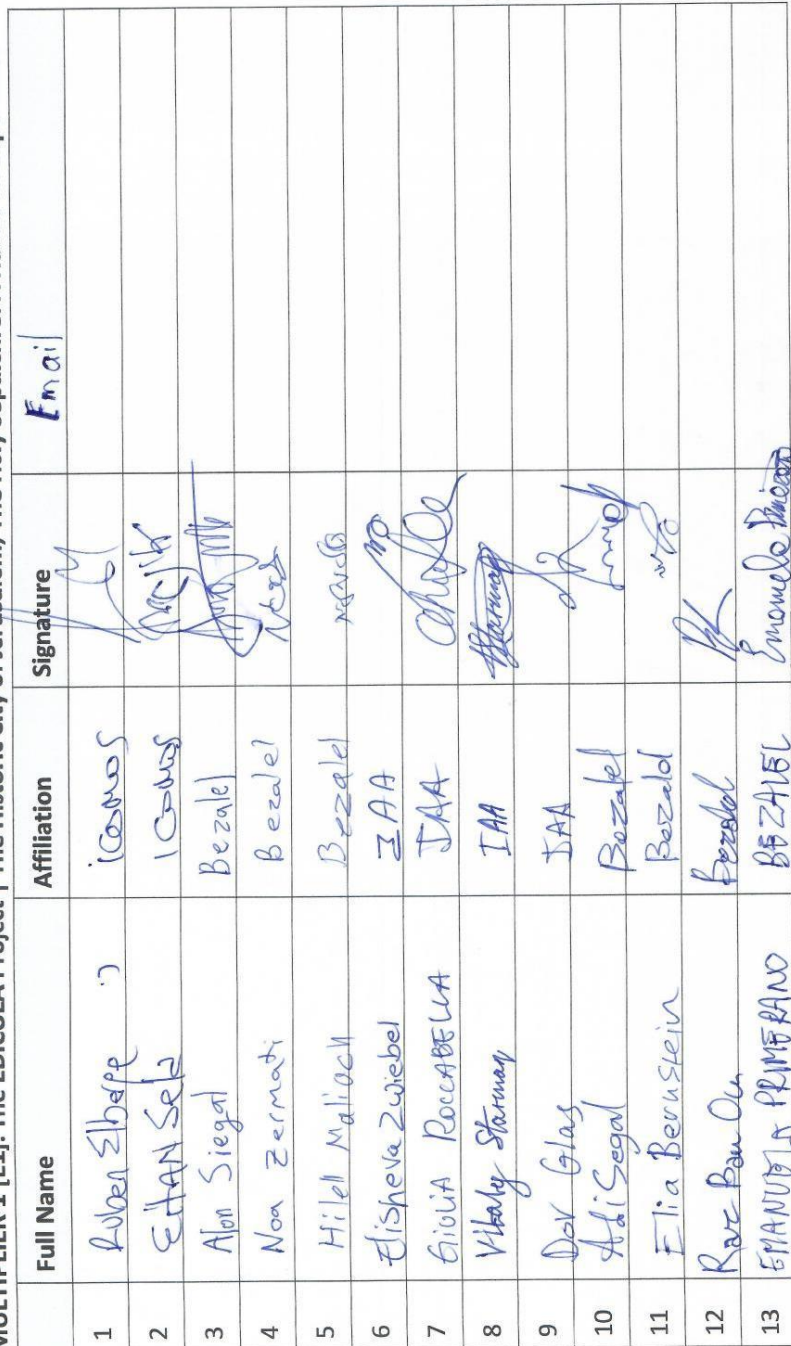 MULTIPLIER 1 [E1]: The EDICULA Project | The Historic City of Jerusalem, The Holy
Full Name Affiliation Signature Email
1 Ruben Elberge :) icomos
2 EITAN Sela ICOMOS
3 Alon Siegal Bezalel
4 Noa Zermati Bezalel
5 Hilell Malioch Bezalel
6 Elisheva Zwiebel IAA
7 GIULIA ROCCABELLA IAA
8 Vitaly Starman IAA
9 Dor Glas IAA
10 Adi Segal Bezalel
11 Elia Bernstein Bezalel
12 Raz Bar On Bezalel
13 EMANUELA PRIMERANO BEZALEL Emanuela Primerano